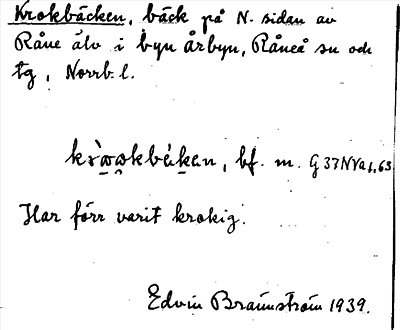 Krokbäcken, bäck på N. sidan av
Råne älv i byn Årbyn, Råneå sn och
tg, Norrb. l.
bf. m. G 37 NVa1.63
Har förr varit krokig.
Edvin Brännström 1939.